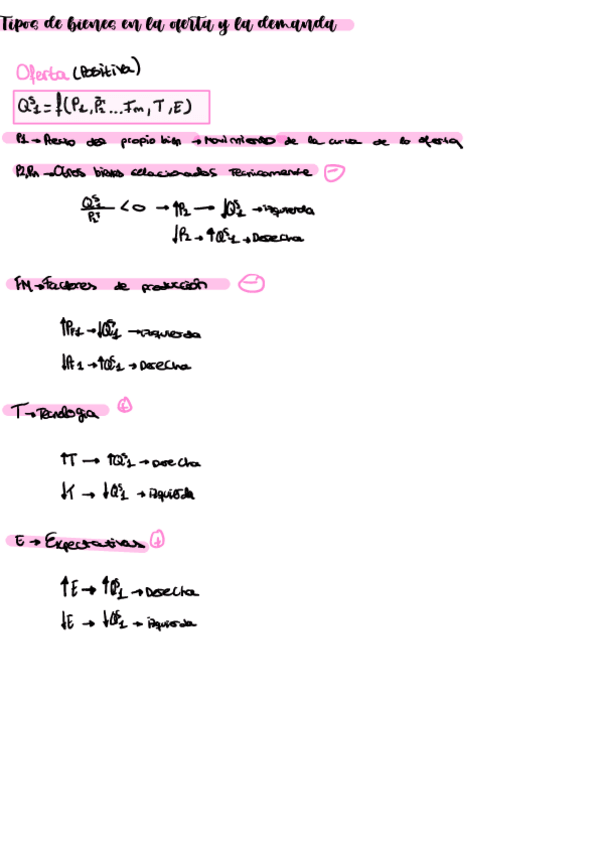 Tipos de bienes en la oferta y la demanda
Oferta (Positiva)
Qˢ₁ = f (P₁, P₂ ... Fm, T, E)
P1 → Precio del propio bien → Movimiento de la curva de la oferta
P2, Pn → Otros bienes relacionados Tecnicamente −
Qˢ₁ / P₂ < 0 → ↑P₂ → ↓Qˢ₁ → izquierda
↓P₂ → ↑Qˢ₁ → Derecha
FM → Factores de producción −
↑PF1 → ↓Qˢ₁ → izquierda
↓PF1 → ↑Qˢ₁ → Derecha
T → Tecnologia +
↑T → ↑Qˢ₁ → Derecha
↓T → ↓Qˢ₁ → izquierda
E → Expectativas +
↑E → ↑Qˢ₁ → Derecha
↓E → ↓Qˢ₁ → izquierda